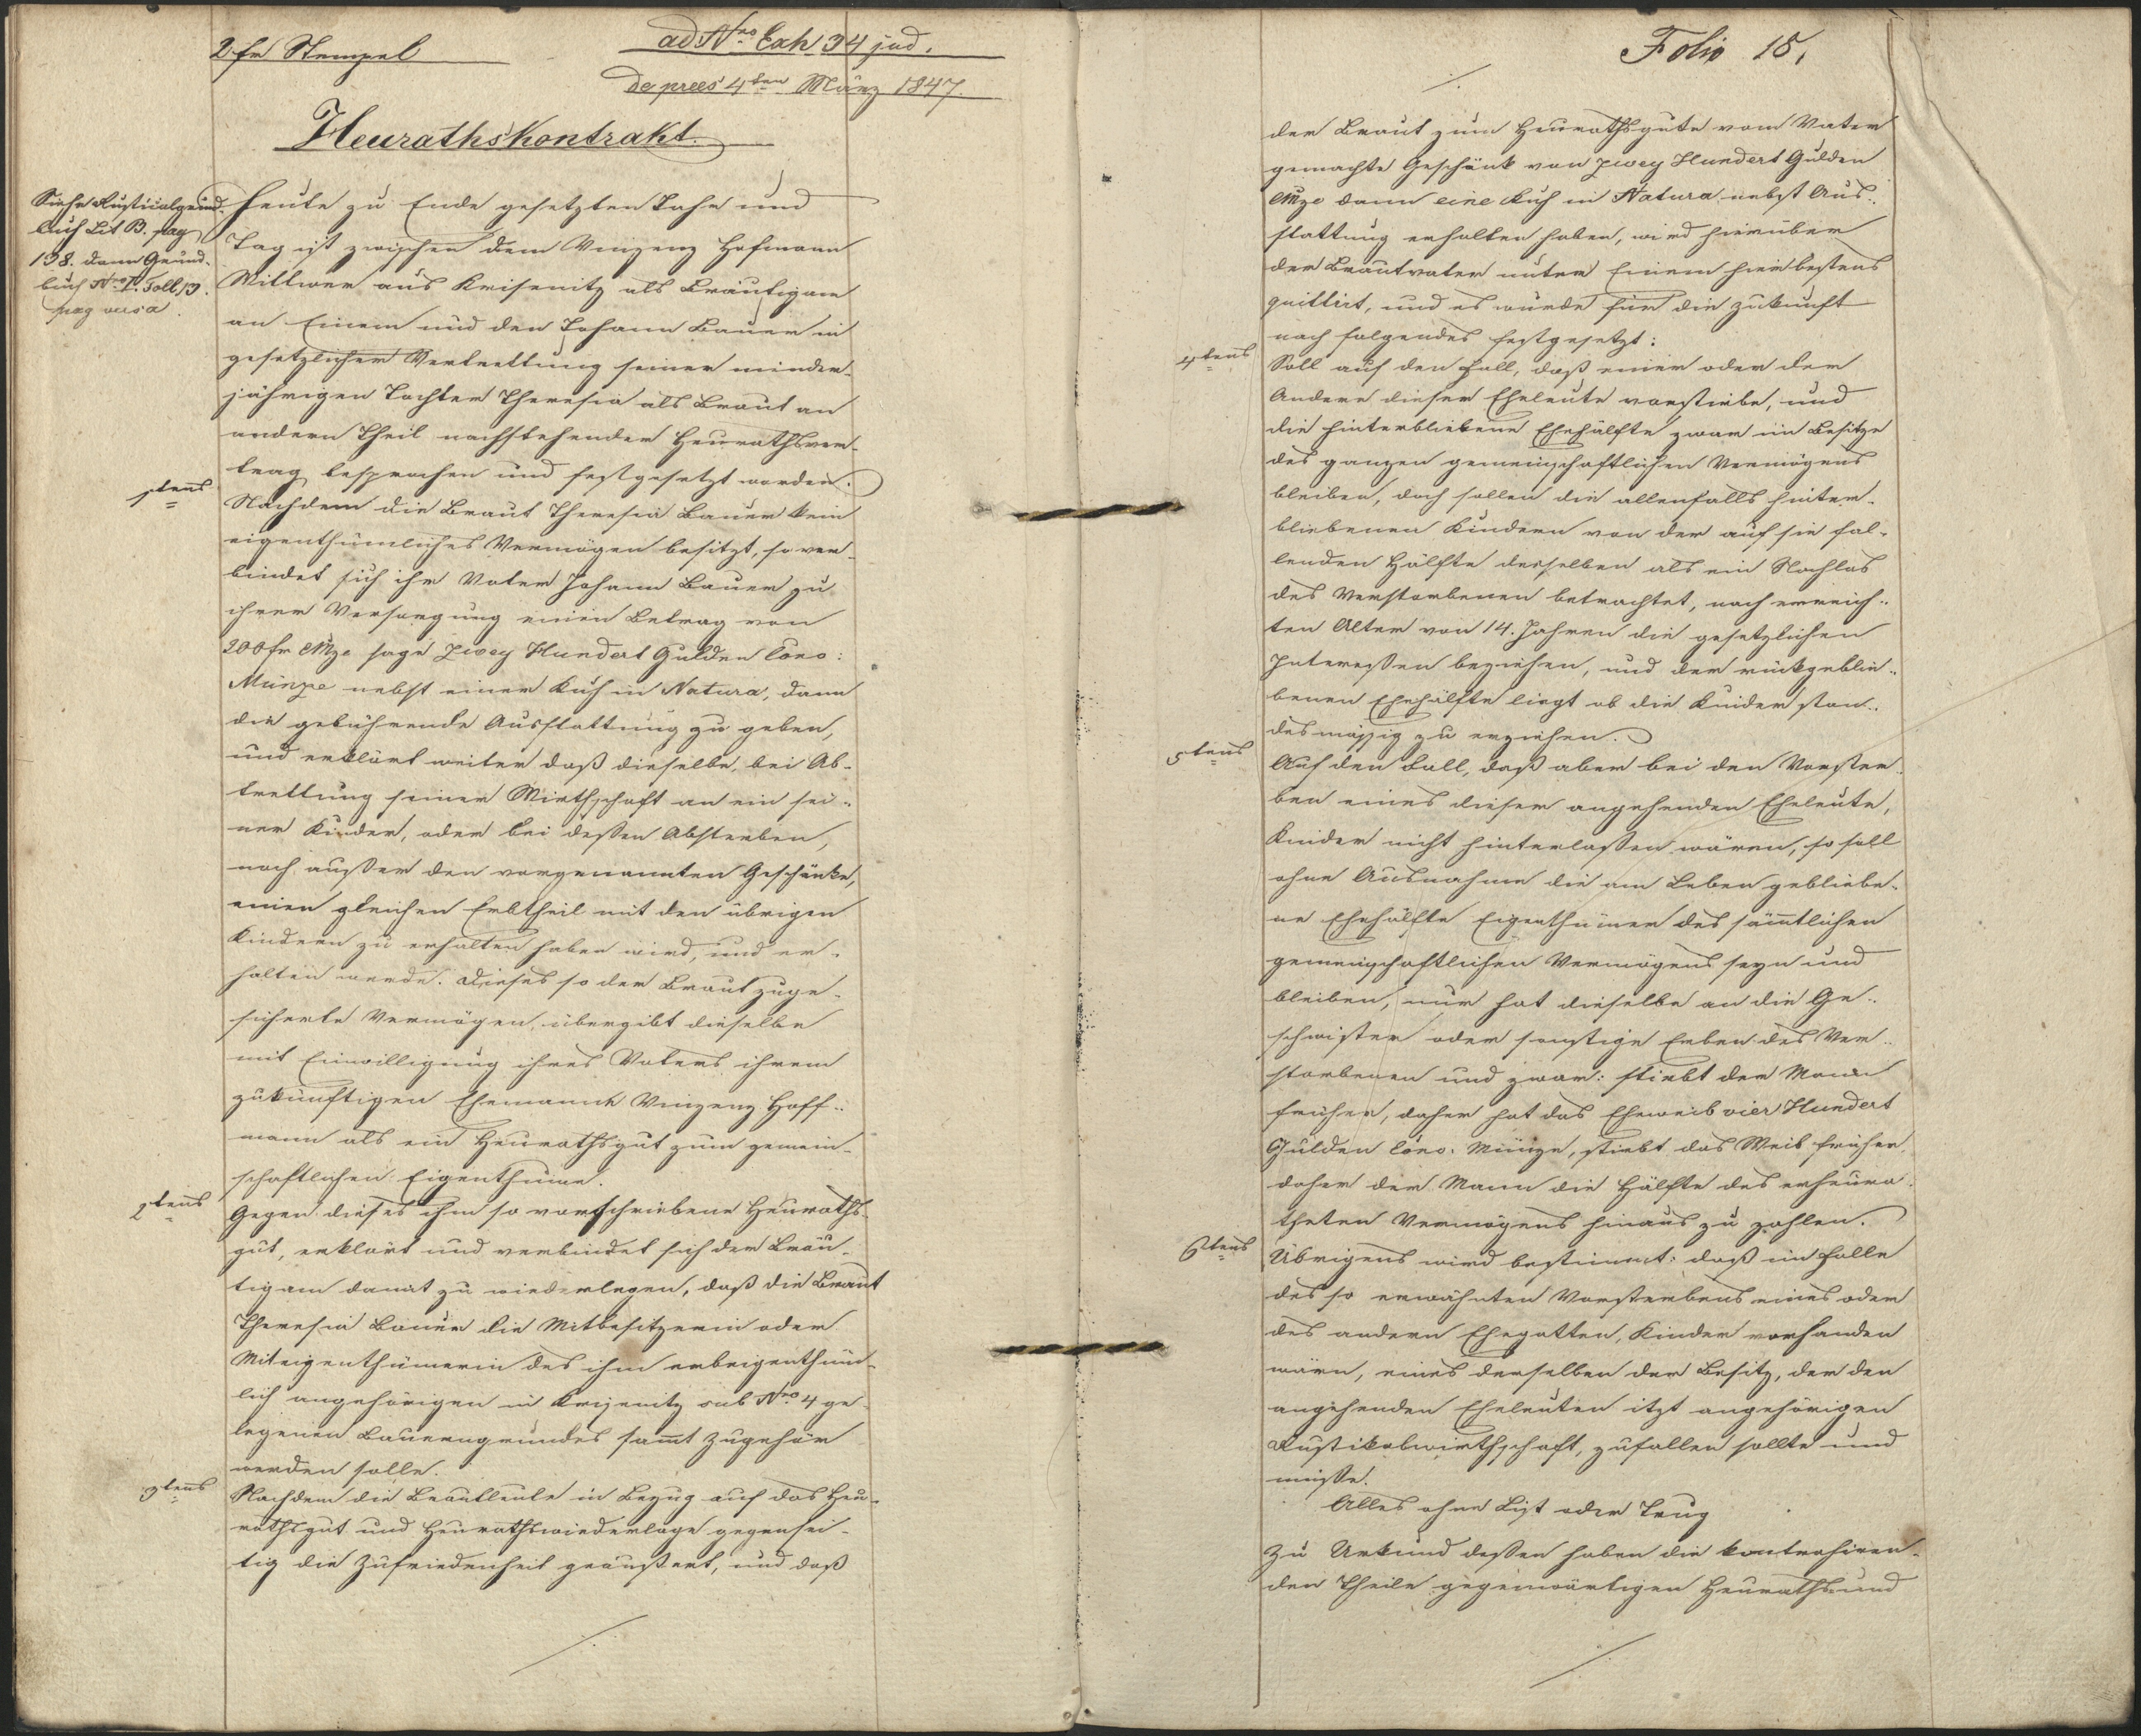 2 fr Stempel
ad Nro Exh. 34 jud.
de præs 4ten März 1847.
Heurathskontrakt.
Siehe Rusticalgrund-
buch Lit B. pag
138. dann Grund-
buch Nro I. Foll. 19.
pag versa.
Heute zu Ende gesetzten Jahr und
Tag ist zwischen dem Vinzenz Hofmann
Wittwer aus Krisenitz als Bräutigam
an Einem und den Johann Bauer in
gesetzlicher Vertrettung seiner minder-
jährigen Tochter Theresia als Braut an
andern Theil nachstehender Heurathsver-
trag besprochen und festgesetzt worden.
1tens
Nachdem die Braut Theresia Bauer kein
eigenthümliches Vermögen besitzt, so ver-
bindet sich ihr Vater Johann Bauer zu
ihrer Versorgung einen Betrag von
200 fr CMze sage Zwey Hundert Gulden Cono:
Münze nebst einer Kuh in Natura, dann
die gebührende Ausstattung zu geben,
und erklärt weiter daß dieselbe, bei Ab-
trettung seiner Wirthschaft an ein sei-
ner Kinder, oder bei dessen Absterben,
noch außer den vorgenannten Geschänke,
einen gleichen Erbtheil mit den übrigen
Kindern zu erhalten haben wird, und er-
halten werde. Dieses so der Braut zuge-
sicherte Vermögen übergibt dieselbe
mit Einwilligung ihres Vaters ihrem
zukünftigen Ehemanne Vinzenz Hoff-
mann als ein Heurathsgut zum gemein-
schaftlichen Eigenthume.
2tens
Gegen dieses ihm so vorschriebene Heuraths-
gut, erklärt und verbindet sich der Bräu-
tigam damit zu wiederlegen, daß die Braut
Theresia Bauer die Mitbesitzerin oder
Miteigenthümerin des ihm erbeigenthüm-
lich angehörigen in Krisenitz sub Nro 4 ge-
legenen Bauerngrundes sammt Zugehör
werden solle.
3tens
Nachdem die Brautleute in Bezug auf das Heu-
rathsgut und Heurathswiederlage gegensei-
tig die Zufriedenheit geäußert, und daß
Folio 18.
der Braut zum Heurathsgute vom Vater
gemachte Geschänk von Zwey Hundert Gulden
CMze dann eine Kuh in Natura nebst Aus-
stattung erhalten haben, wird hierüber
der Brautvater unter Einem hier bestens
quittirt, und es wurde für die Zukunft
noch folgendes festgesetzt:
4tens
Soll auf den Fall, daß einer oder der
Andere dieser Eheleute vorstirbe, und
die hinterbliebene Ehehälfte zwar im Besitze
des ganzen gemeinschaftlichen Vermögens
bleiben, doch sollen die allenfalls hinter-
bliebenen Kindern von der auf sie fal-
lenden Hälfte desselben als ein Nachlas
des Verstorbenen betrachtet, nach erreich-
ten Alter von 14. Jahren die gesetzlichen
Interessen beziehen, und der rückgeblie-
benen Ehehälfte liegt ob die Kinder stan-
desmässig zu erziehen.
5tens
Auf den Fall, daß aber bei den Vorster-
ben eines dieser angehenden Eheleute,
Kinder nicht hinterlassen wären, so soll
ohne Ausnahme die am Leben gebliebe-
ne Ehehälfte Eigenthümer des sämmtlichen
gemeinschaftlichen Vermögens seyn und
bleiben, nur hat dieselbe an die Ge-
schwister oder sonstige Erben des Ver-
storbenen und zwar: stirbt der Mann
früher, daher hat das Eheweib vier Hundert
Gulden Cono. Münze, stirbt das Weib früher,
daher der Mann die Hälfte des erheura-
theten Vermögens hinaus zu zahlen.
6tens
Übrigens wird bestimmt: daß im Falle
des so erwähnten Vorsterbens eines oder
des andern Ehegatten, Kinder vorhanden
wären, eines derselben der Besitz, der den
angehenden Eheleuten itzt angehörigen
Rustikalwirthschaft, zufallen sollte und
müsse.
Alles ohne List oder Trug
Zu Urkund dessen haben die kontrahiren-
den Theile gegenwärtigen Heuraths und